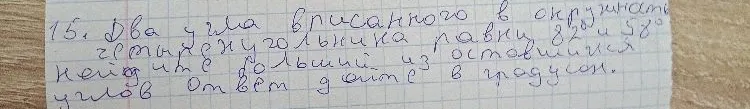 15. Два угла вписанного в окружность
четырехугольника равны 82° и 58°
найдите больший из оставшихся
углов Ответ дайте в градусах.